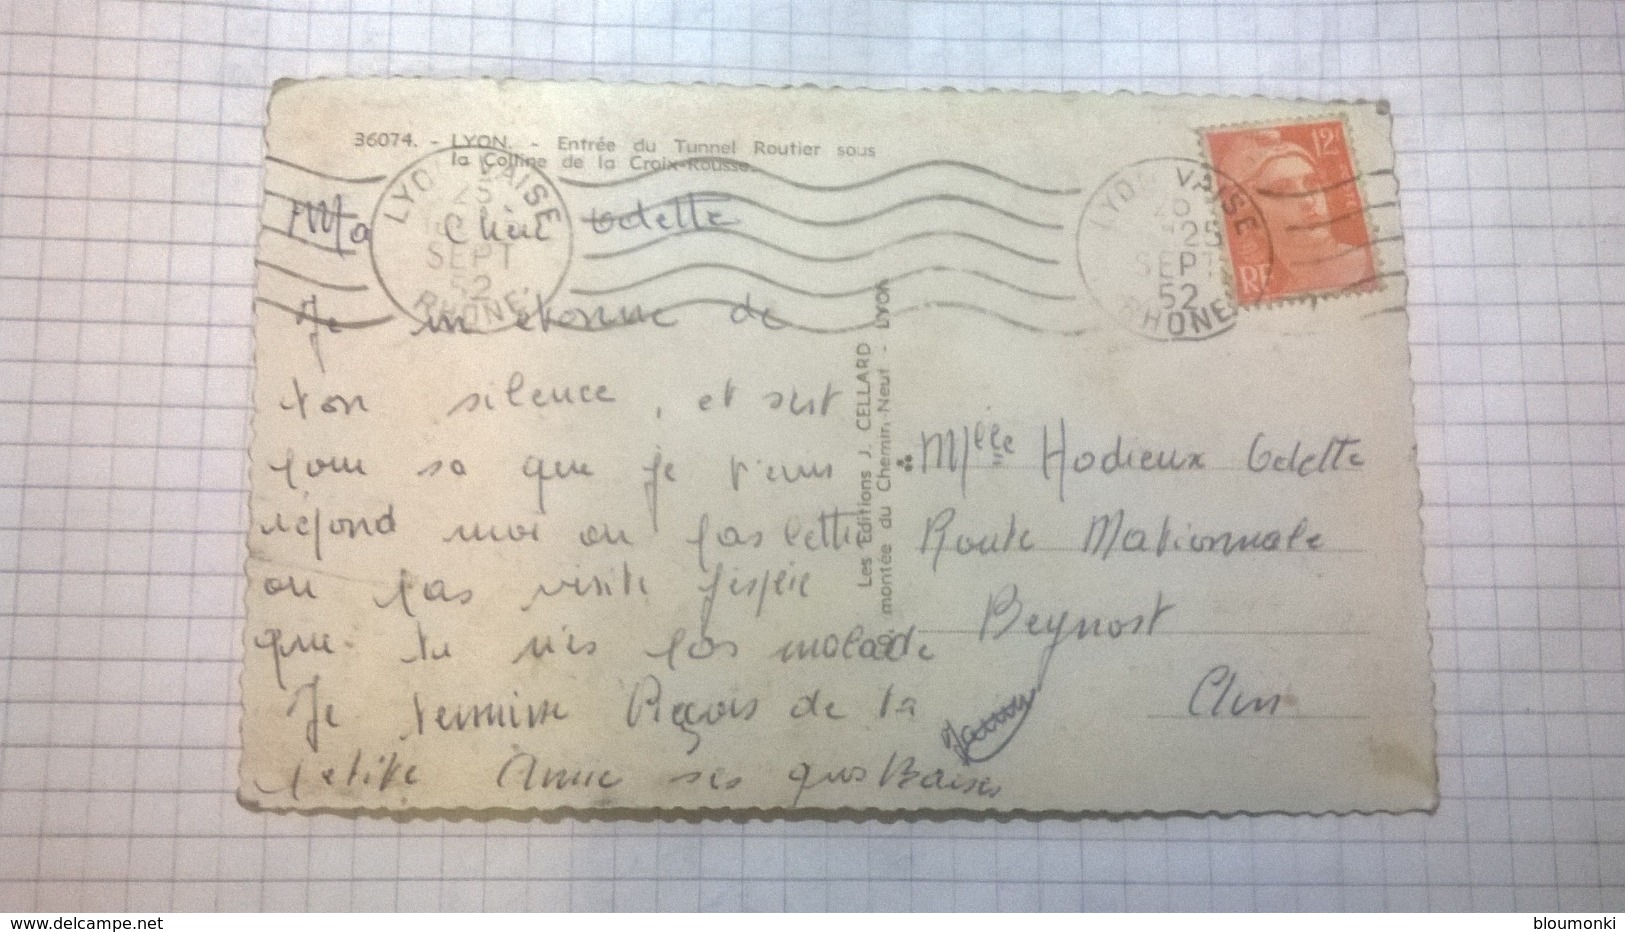 36074. - LYON. - Entrée du Tunnel Routier sous
la Colline de la Croix-Rousse.
LYON VAISE
25
SEPT
52
RHONE
LYON VAISE
25
SEPT
52
RHONE
12F
RF
Ma Chère Odette
Je m etonne de
ton silence, et sest
pour sa que je viens
répond moi ou pas lettre
ou pas visite j'espère
que tu n'es pas malade
Je termine Reçois de ta
petite Amie ses gros Baises
Les Editions J. CELLARD
montée du Chemin-Neuf - LYON
Mlle Hodieux Odette
Route Nationnale
Beynost
Ain
delcampe.net
bloumonki